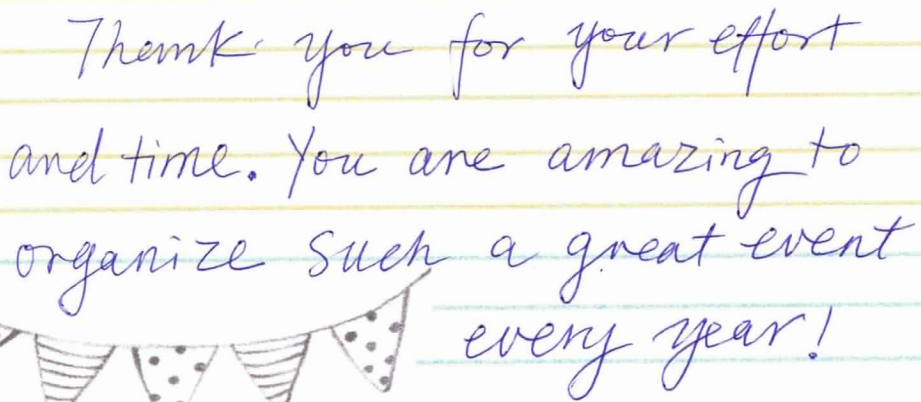 Thank you for your effort
and time. You are amazing to
organize such a great event
every year!